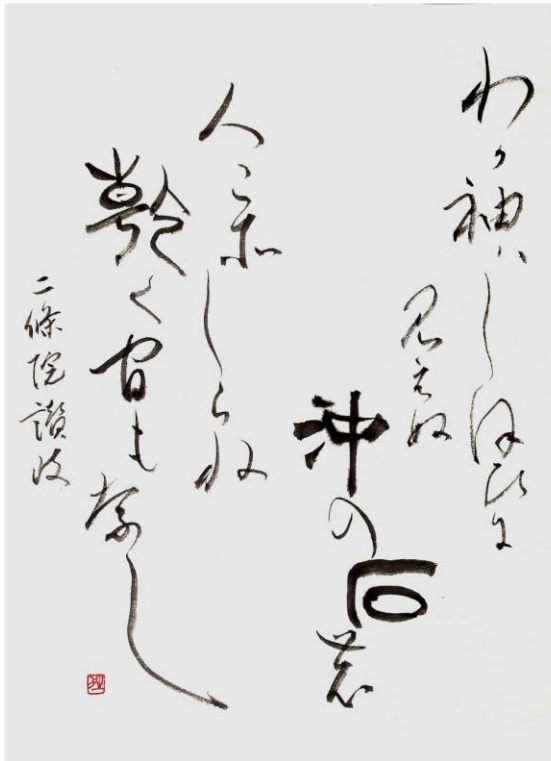 わか袖はしほひに
見えぬ
沖の石の
人こそしらね
乾く間もなし
二條院讃岐